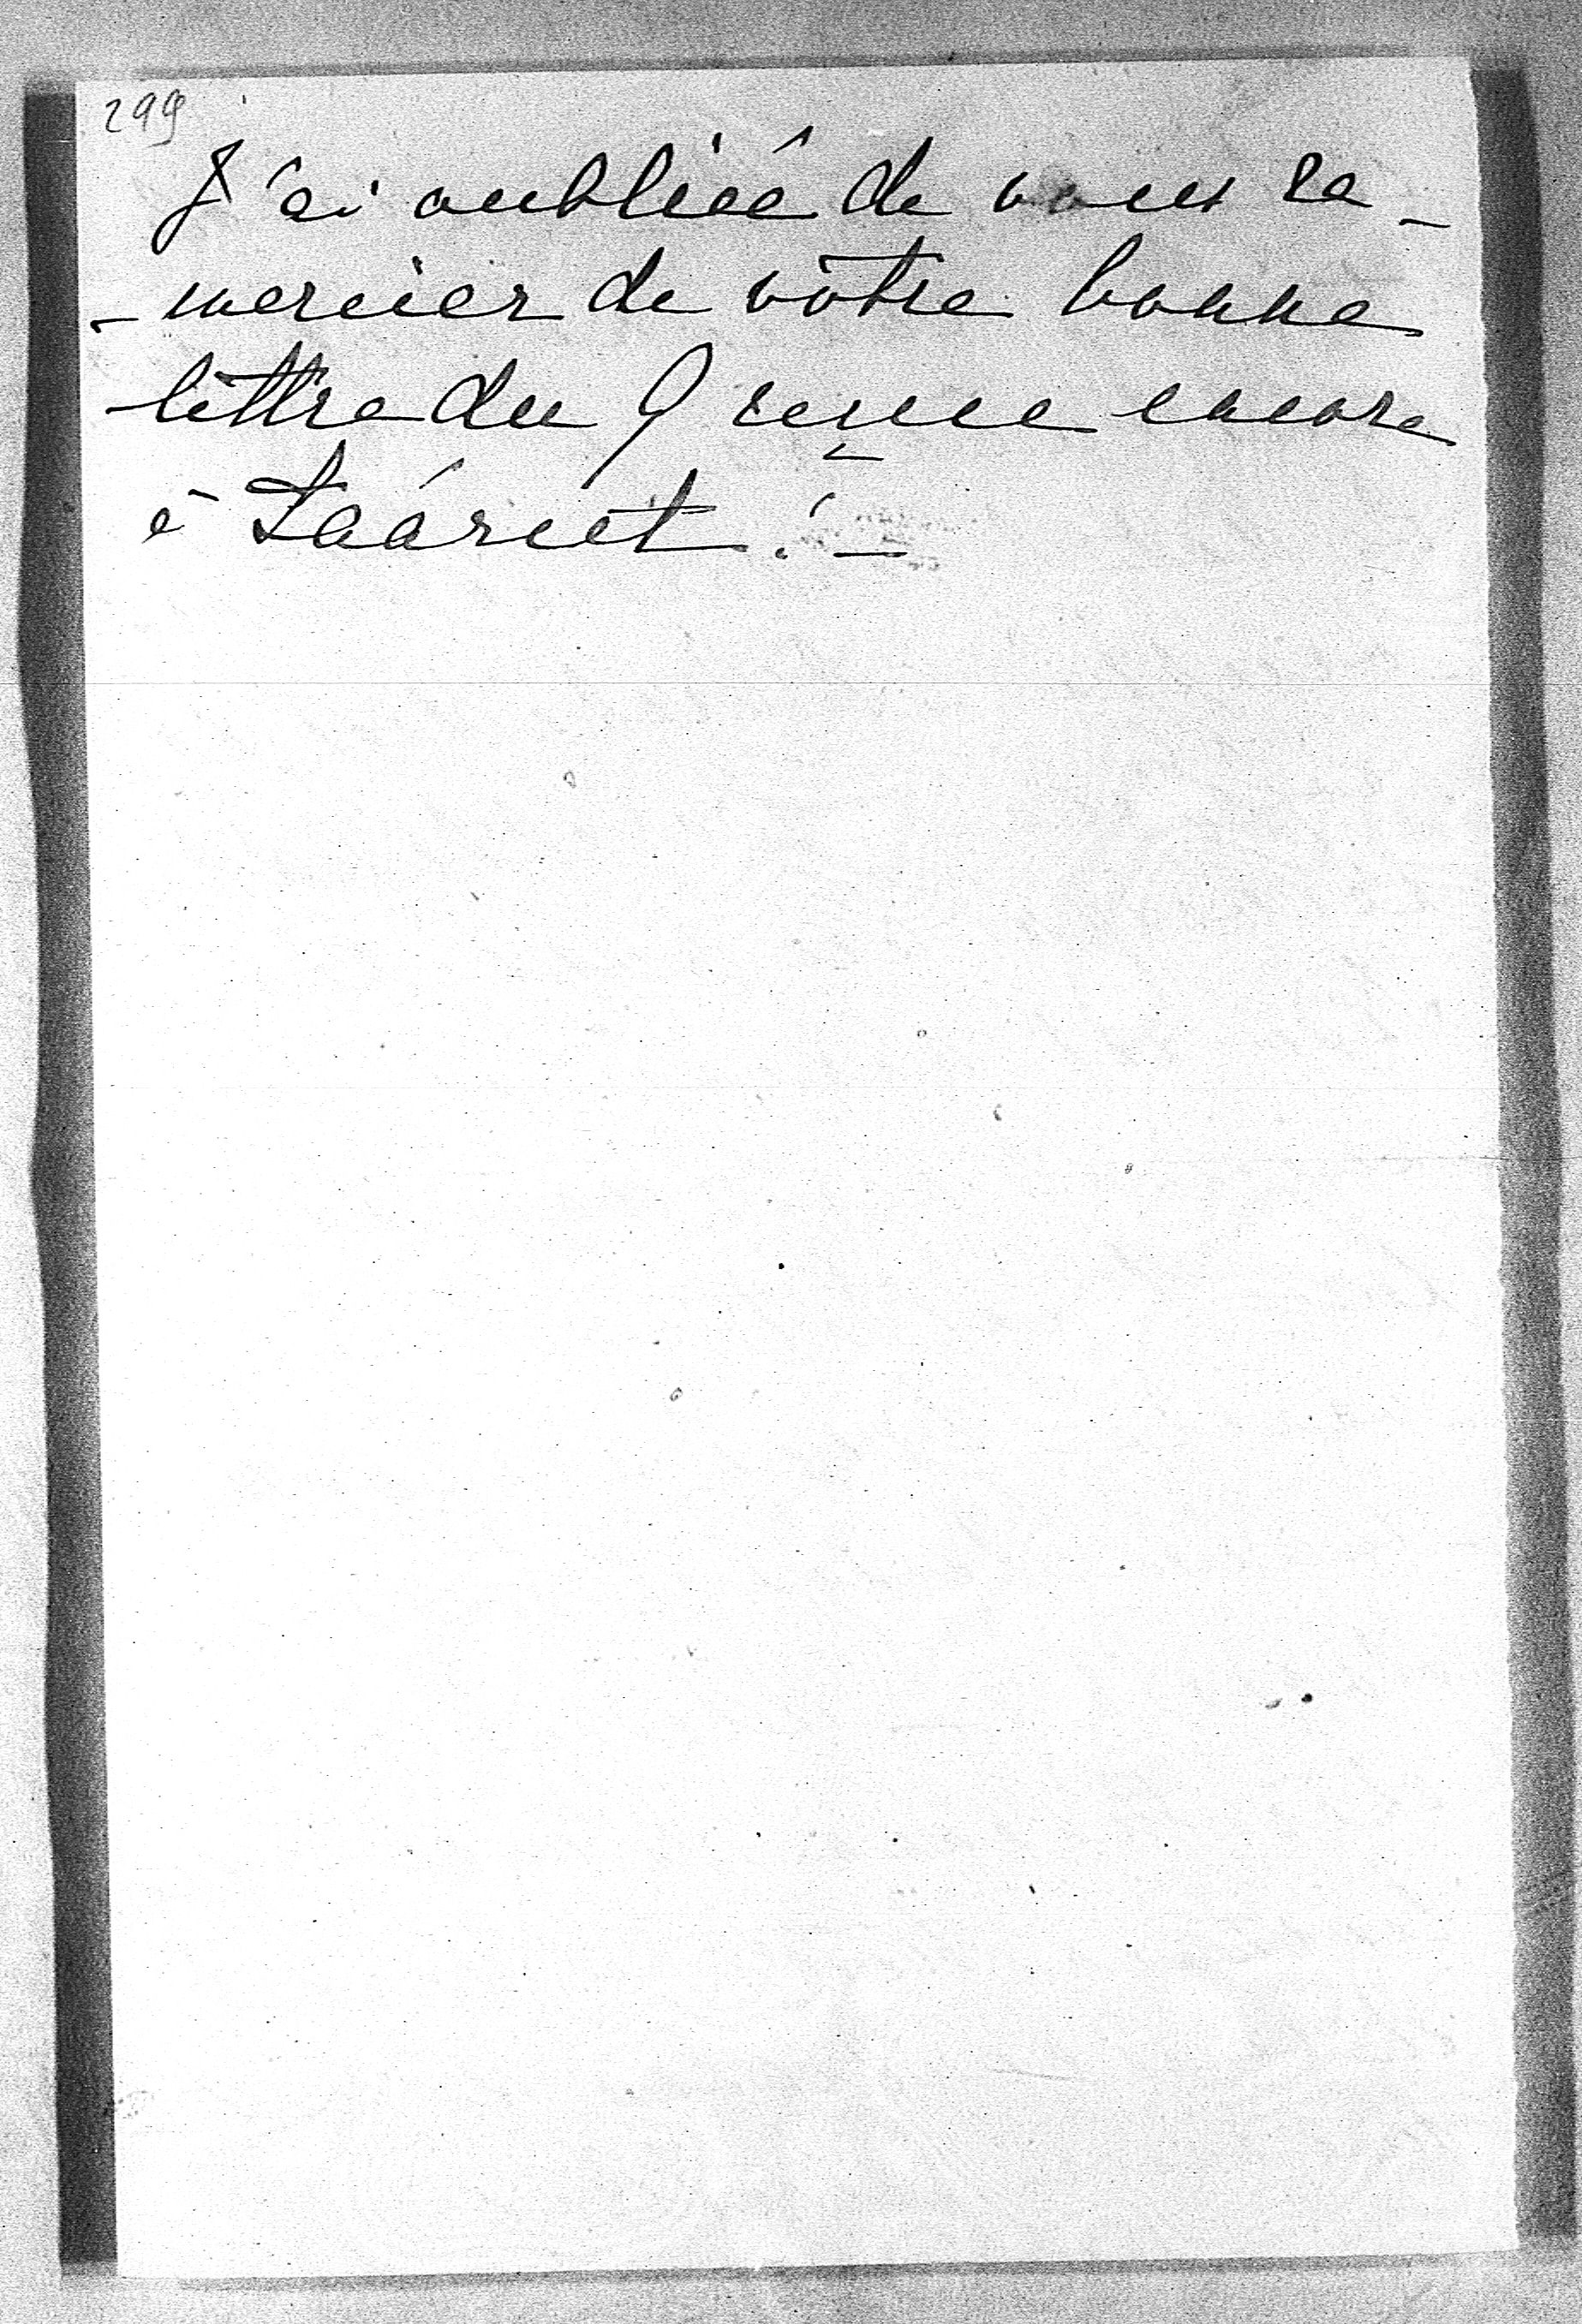 299
J'ai oubliée de vous re-
-mercier de vôtre bonne
lettre du 9 reçue encore
à Laárut! –